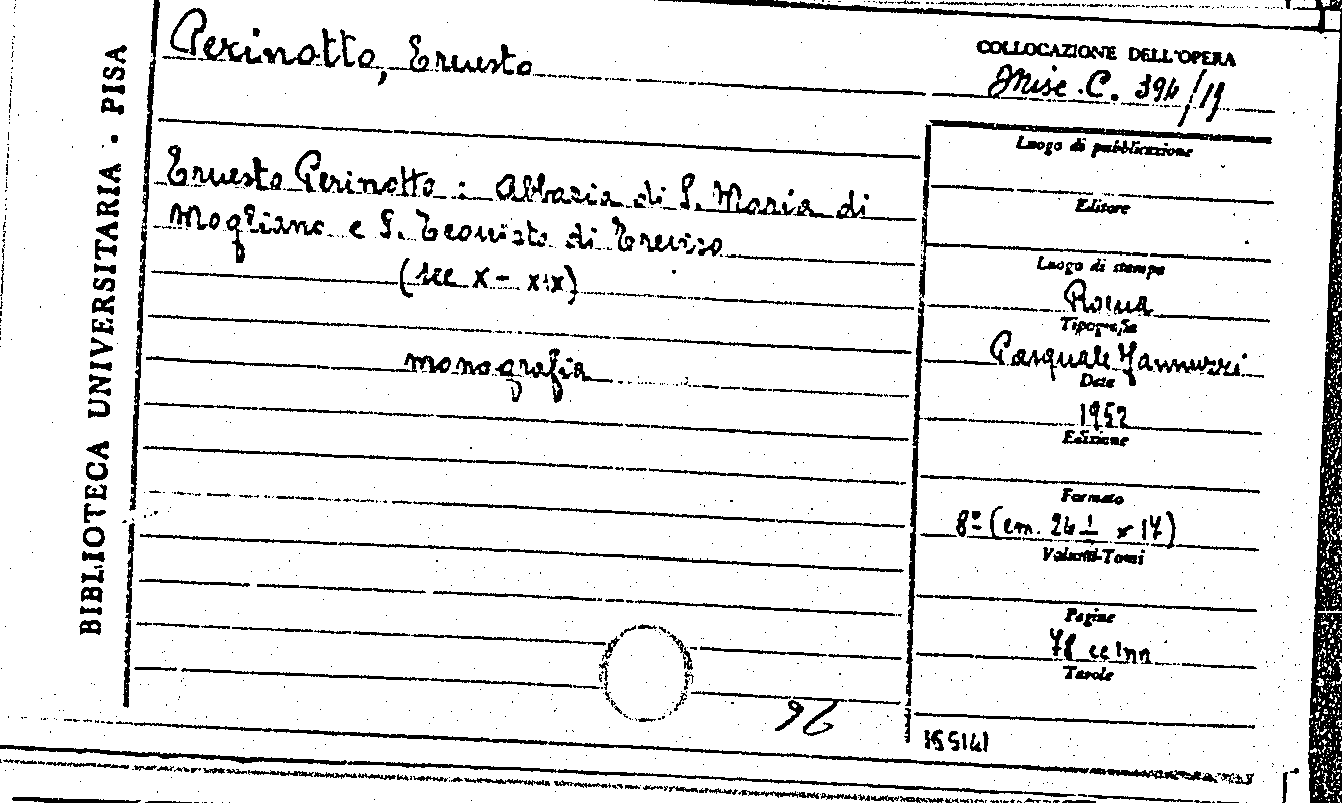 BIBLIOTECA UNIVERSITARIA · PISA
Perinotto, Ernesto
Ernesto Perinotto : Abbazia di S. Maria di
Mogliano e S. Teonisto di Treviso
(sec X - XIX)
monografia
96
COLLOCAZIONE DELL'OPERA
Misc. C. 394/19
Luogo di pubblicazione
Editore
Luogo di stampa
Roma
Tipografia
Pasquale Jannuzzi
Data
1952
Edizione
Formato
8º (cm. 24 ½ x 17)
Volumi-Tomi
Pagine
78
Tavole
155141